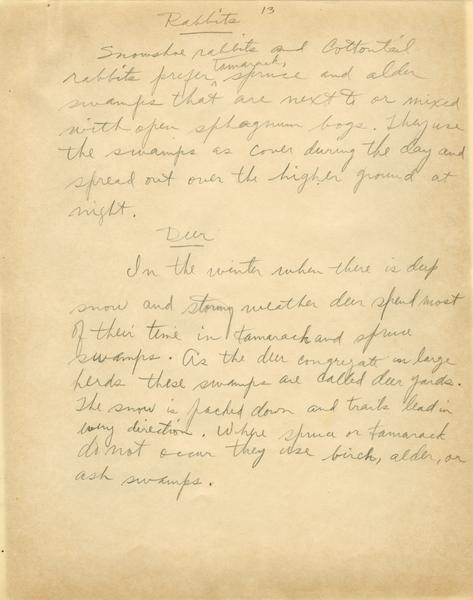 13
Rabbits
Snowshoe rabbits and Cottontail
rabbits prefer tamarack, spruce and alder
swamps that are next to or mixed
with open sphagnum bogs. They use
the swamps as cover during the day and
spread out over the higher ground at
night.
Deer
In the winter when there is deep
snow and stormy weather deer spend most
of their time in tamarack and spruce
swamps. As the deer congregate in large
herds these swamps are called deer yards.
The snow is packed down and trails lead in
every direction. Where spruce or tamarack
do not occur they use birch, alder, or
ash swamps.